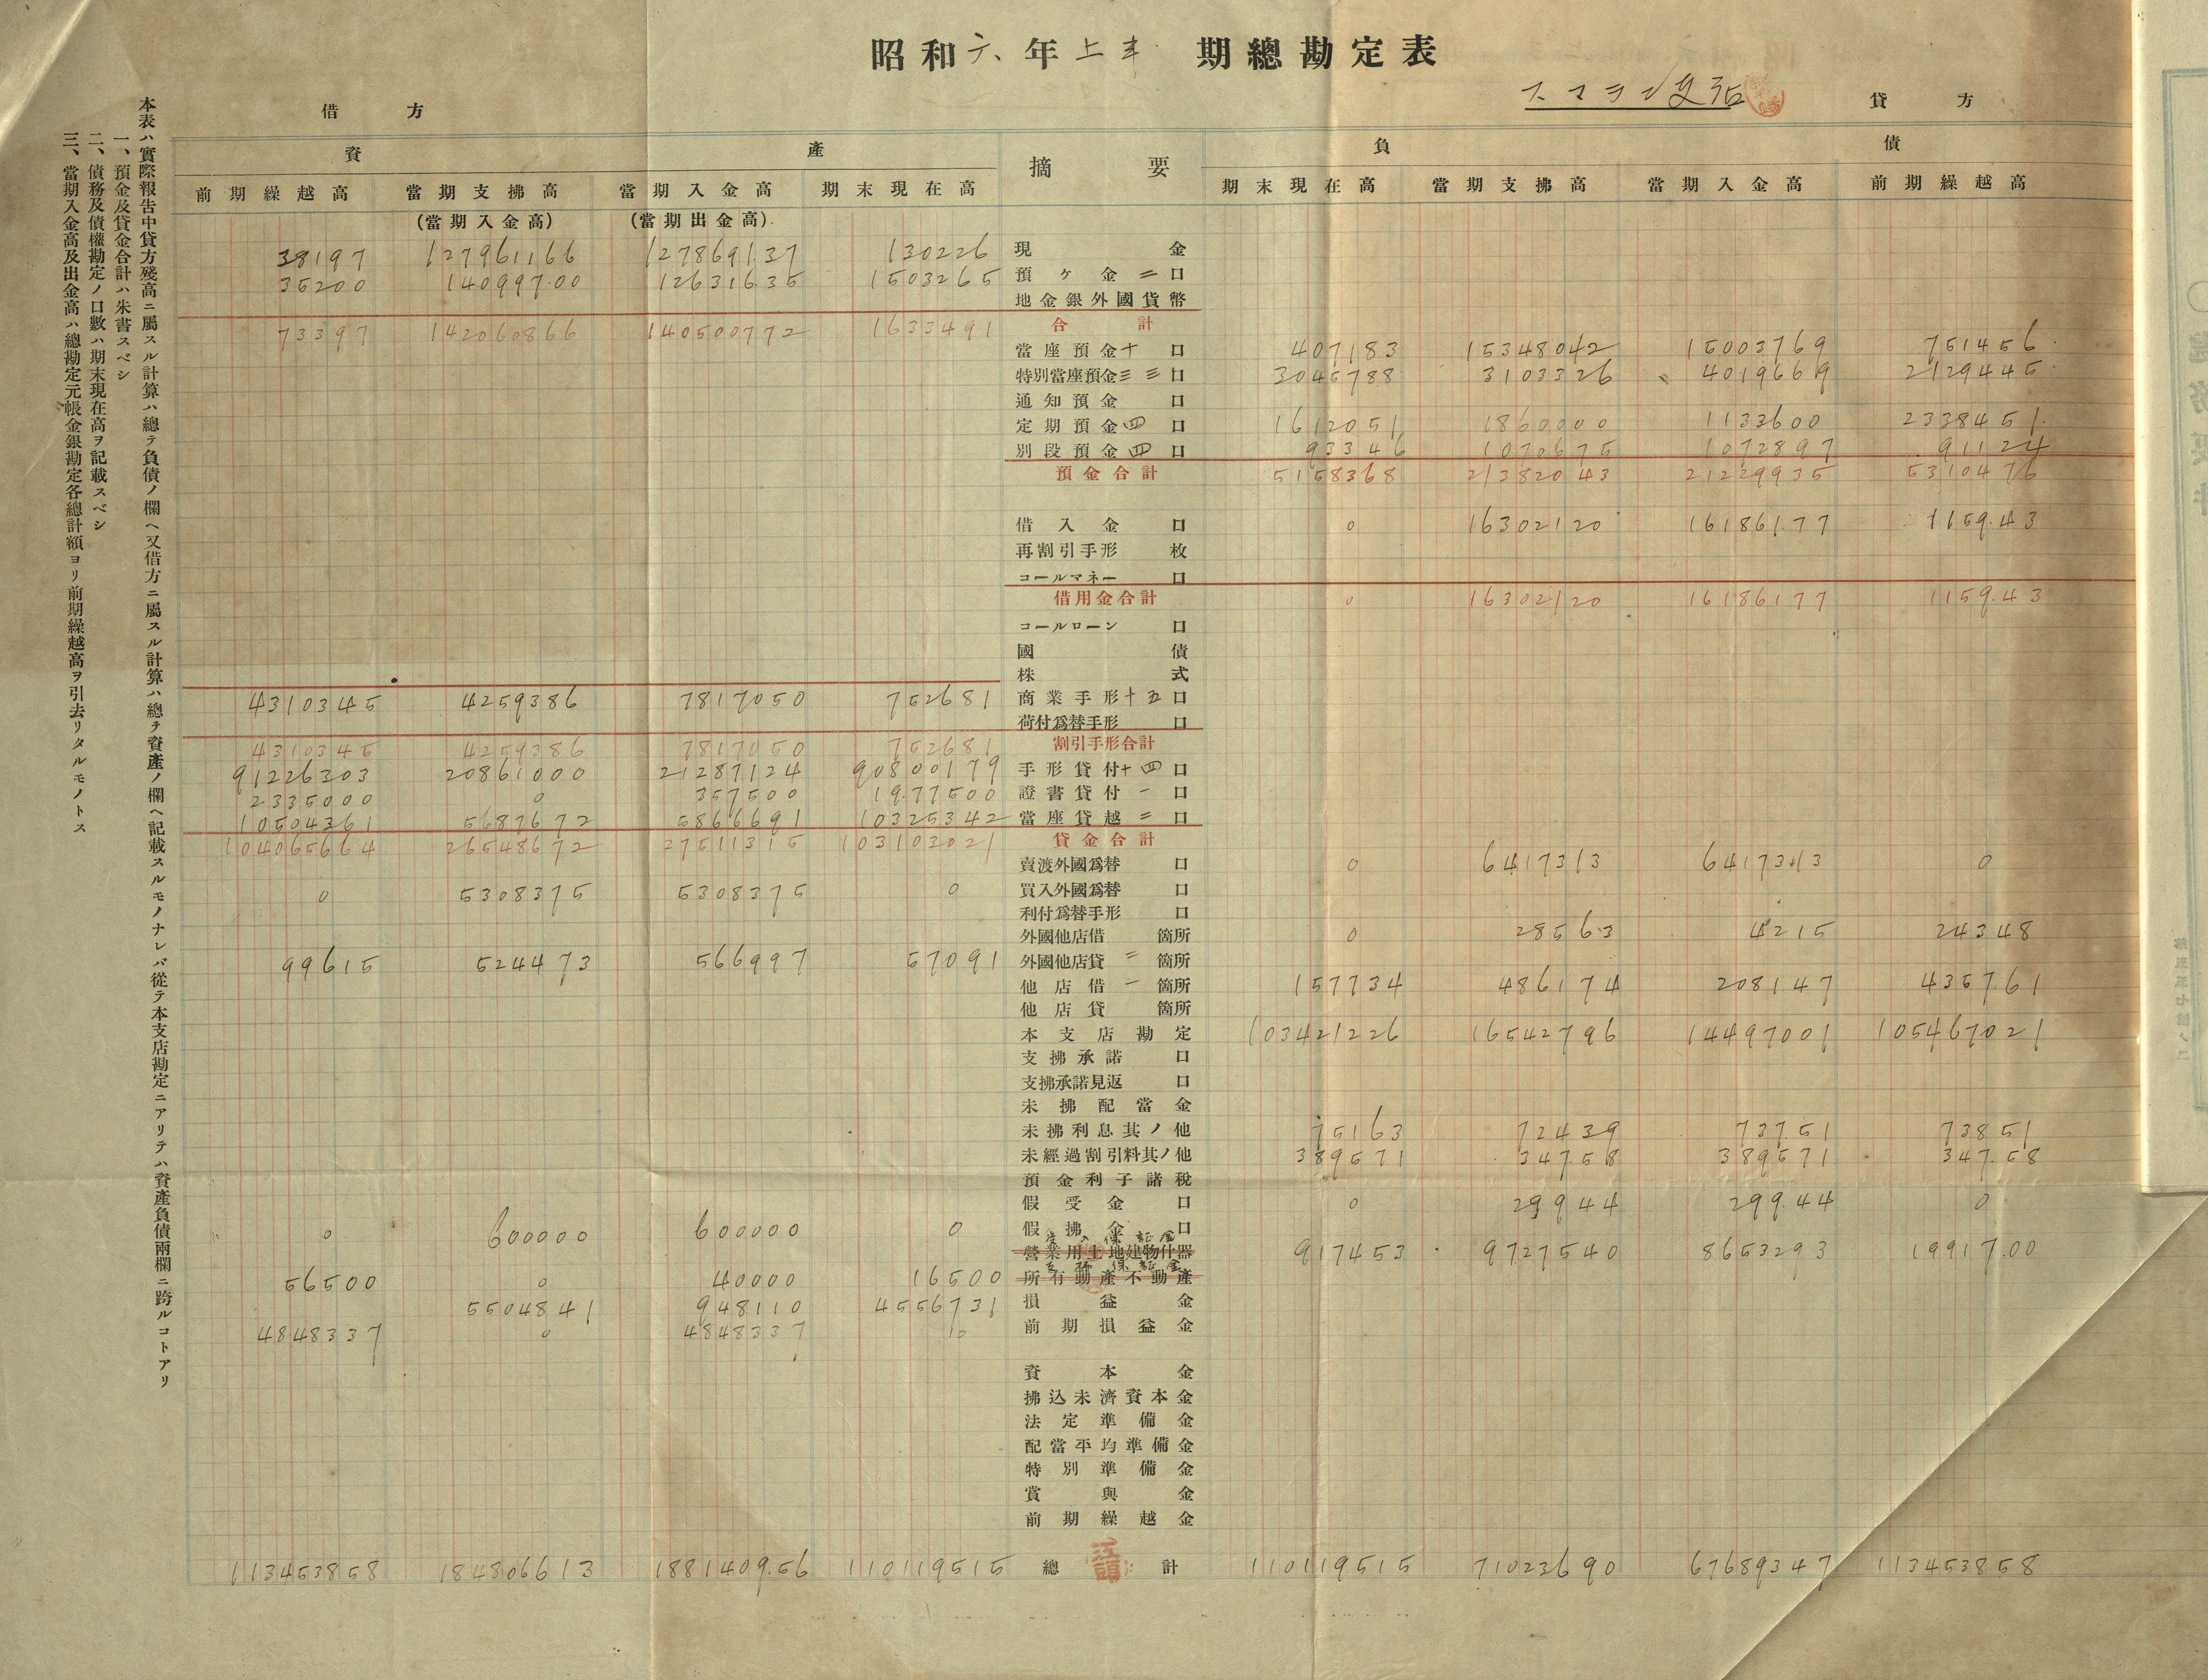 昭和六年上半期總勘定表
スマラン支店
借方 貸方
資產 摘要 負債
前期繰越高 當期支拂高 當期入金高 期末現在高 期末現在高 當期支拂高 當期入金高 前期繰越高
(當期入金高) (當期出金高)
38197 127961166 127869137 130226 現金
35200 140997.00 12631635 1503265 預ヶ金二口
地金銀外國貨幣
73397 142060866 140500772 1633491 合計
當座預金十口 407183 15348042 15003769 751456
特別當座預金三三口 3045788 3103326 4019669 2129445
通知預金口
定期預金四口 1612051 1860000 1133600 2338451
別段預金四口 93346 1070675 1072897 91124
預金合計 5158368 21382043 21229935 5310476
借入金口 0 16302120 161861.77 1159.43
再割引手形枚
コールマネー口
借用金合計 0 16302120 16186177 1159.43
コールローン口
國債
株式
4310345 4259386 7817050 752681 商業手形十五口
荷付爲替手形口
4310345 4259386 7817050 752681 割引手形合計
91226303 20861000 21287124 90800179 手形貸付十四口
2335000 0 357500 19.77500 證書貸付一口
10504361 5687672 5866691 10325342 當座貸越二口
104065664 26548672 27511315 103103021 貸金合計
賣渡外國爲替口 0 6417313 6417313 0
0 5308375 5308375 0 買入外國爲替口
利付爲替手形口
外國他店借箇所 0 28563 4215 24348
99615 524473 566997 57091 外國他店貸二箇所
他店借一箇所 157734 486174 208147 4357.61
他店貸箇所
本支店勘定 103421226 16542796 14497001 105467021
支拂承諾口
支拂承諾見返口
未拂配當金
未拂利息其ノ他 75163 72439 737.51 73851
未經過割引料其ノ他 389571 347.58 389571 347.58
預金利子諸稅
假受金口 0 29944 299.44 0
0 600000 600000 0 假拂金口
受入保証金
營業用土地建物什器 917453 9727540 8653293 19917.00
支拂保証金
56500 0 40000 16500 所有動產不動產
5504841 948110 4556731 損益金
4848337 0 4848337 0 前期損益金
資本金
拂込未濟資本金
法定準備金
配當平均準備金
特別準備金
賞與金
前期繰越金
113453858 184806613 1881409.56 110119515 總計 110119515 71023690 67689347 113453858
本表ハ實際報告中貸方殘高ニ屬スル計算ハ總テ負債ノ欄ヘ又借方ニ屬スル計算ハ總テ資產ノ欄ヘ記載スルモノナレバ從テ本支店勘定ニアリテハ資產負債兩欄ニ跨ルコトアリ
一、預金及貸金合計ハ朱書スベシ
二、債務及債權勘定ノ口數ハ期末現在高ヲ記載スベシ
三、當期入金高及出金高ハ總勘定元帳金銀勘定各總計額ヨリ前期繰越高ヲ引去リタルモノトス